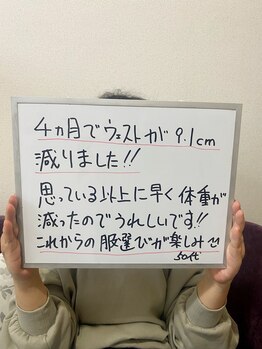 4ヵ月でウェストが9.1cm
減りました!!
思っている以上に早く体重が
減ったのでうれしいです!!
これからの服選びが楽しみ
50代